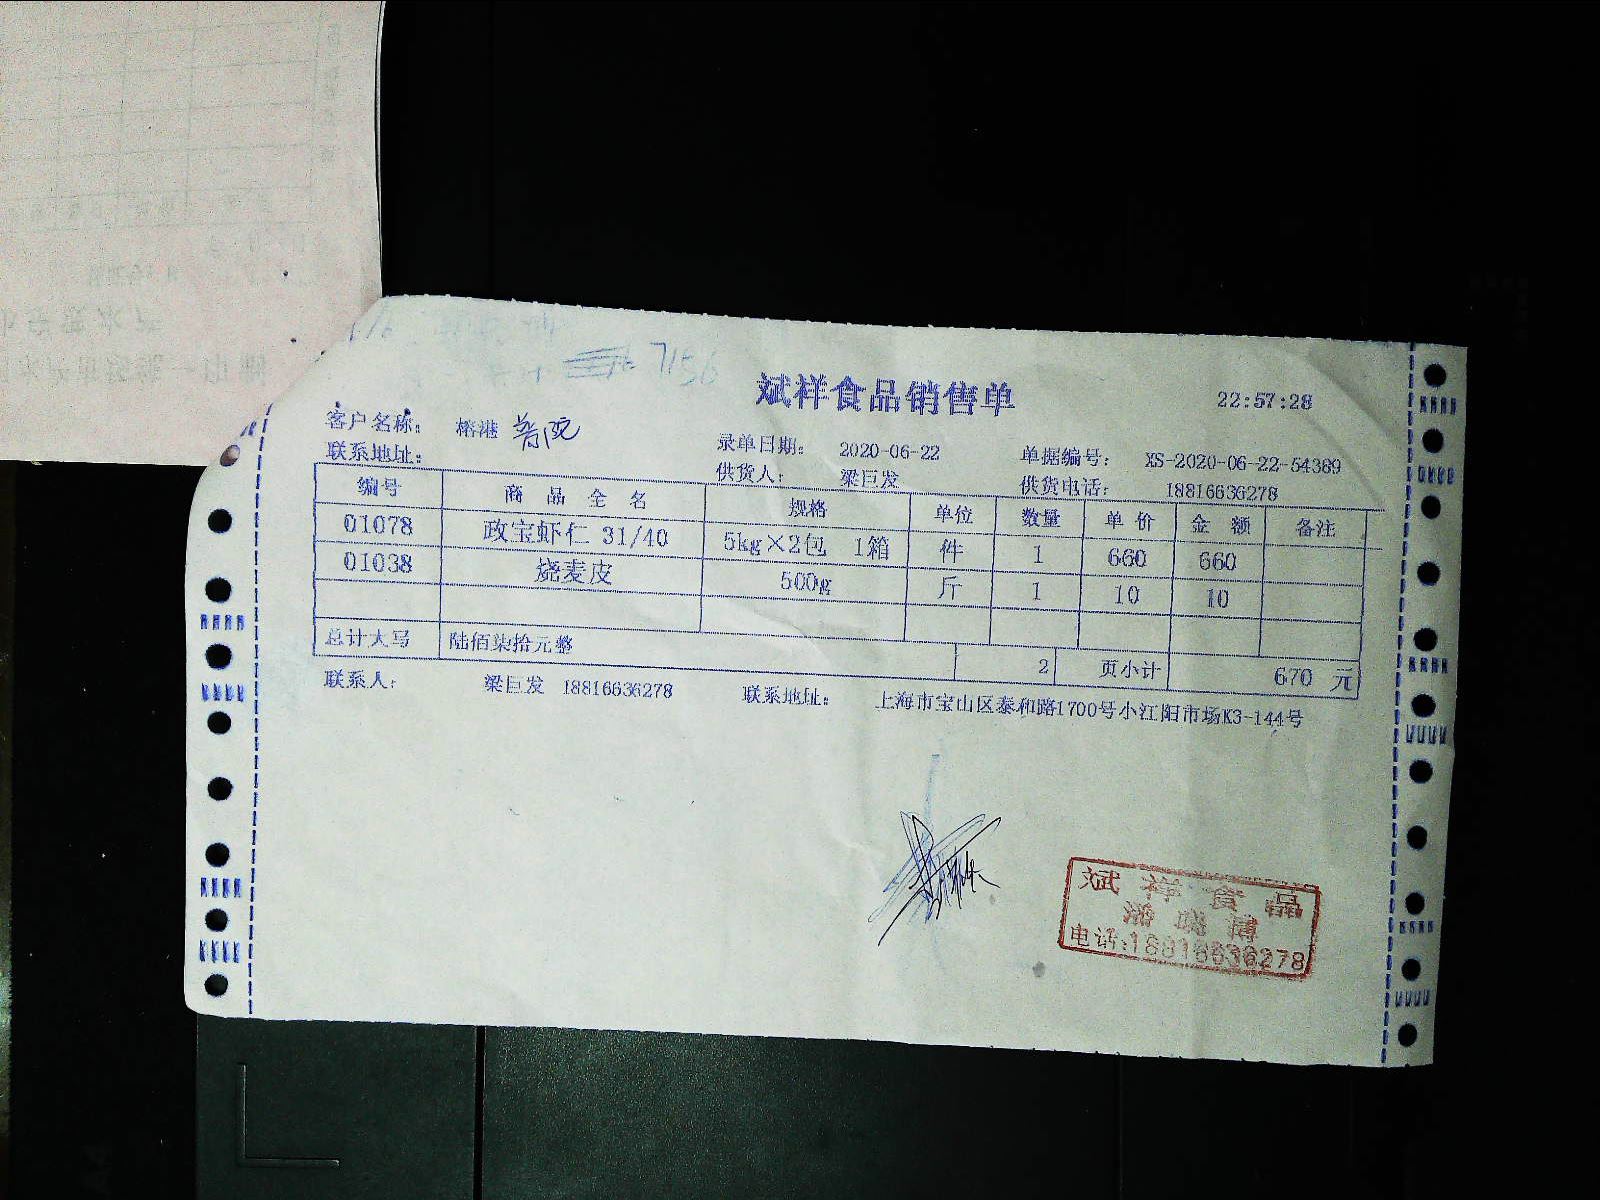 7156
斌祥食品销售单 22:57:28
客户名称: 榕港 普陀
录单日期: 2020-06-22 单据编号: XS-2020-06-22-54389
联系地址:
供货人: 梁巨发 供货电话: 18816636278
编号 商品全名 规格 单位 数量 单价 金额 备注
01078 政宝虾仁 31/40 5kg×2包 1箱 件 1 660 660
01038 烧麦皮 500g 斤 1 10 10
总计大写 陆佰柒拾元整 2 页小计 670 元
联系人: 梁巨发 18816636278 联系地址: 上海市宝山区泰和路1700号小江阳市场K3-144号
斌祥食品
电话:18816636278